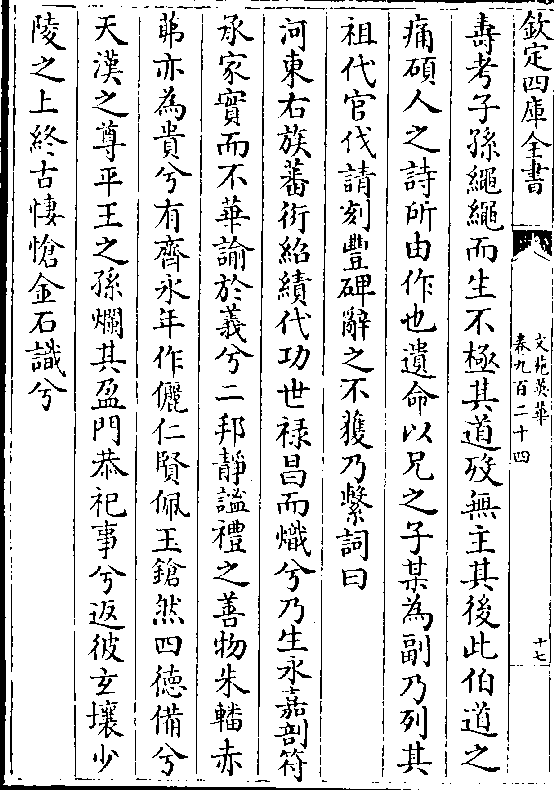 欽定四庫全書
文苑英華
卷九百二十四
十七
壽考子孫繩繩而生不極其道歿無主其後此伯道之
痛碩人之詩所由作也遺命以兄之子某為副乃列其
祖代官伐請刻豐碑辭之不獲乃繫詞曰
河東右族蕃衍紹績代功世禄昌而熾兮乃生永嘉剖符
承家實而不華諭於義兮二邦靜謐禮之善物朱轓赤
茀亦為貴兮有齊永年作儷仁賢佩玉鎗然四徳備兮
天漢之尊平王之孫爛其盈門恭祀事兮返彼玄壤少
陵之上終古悽愴金石識兮